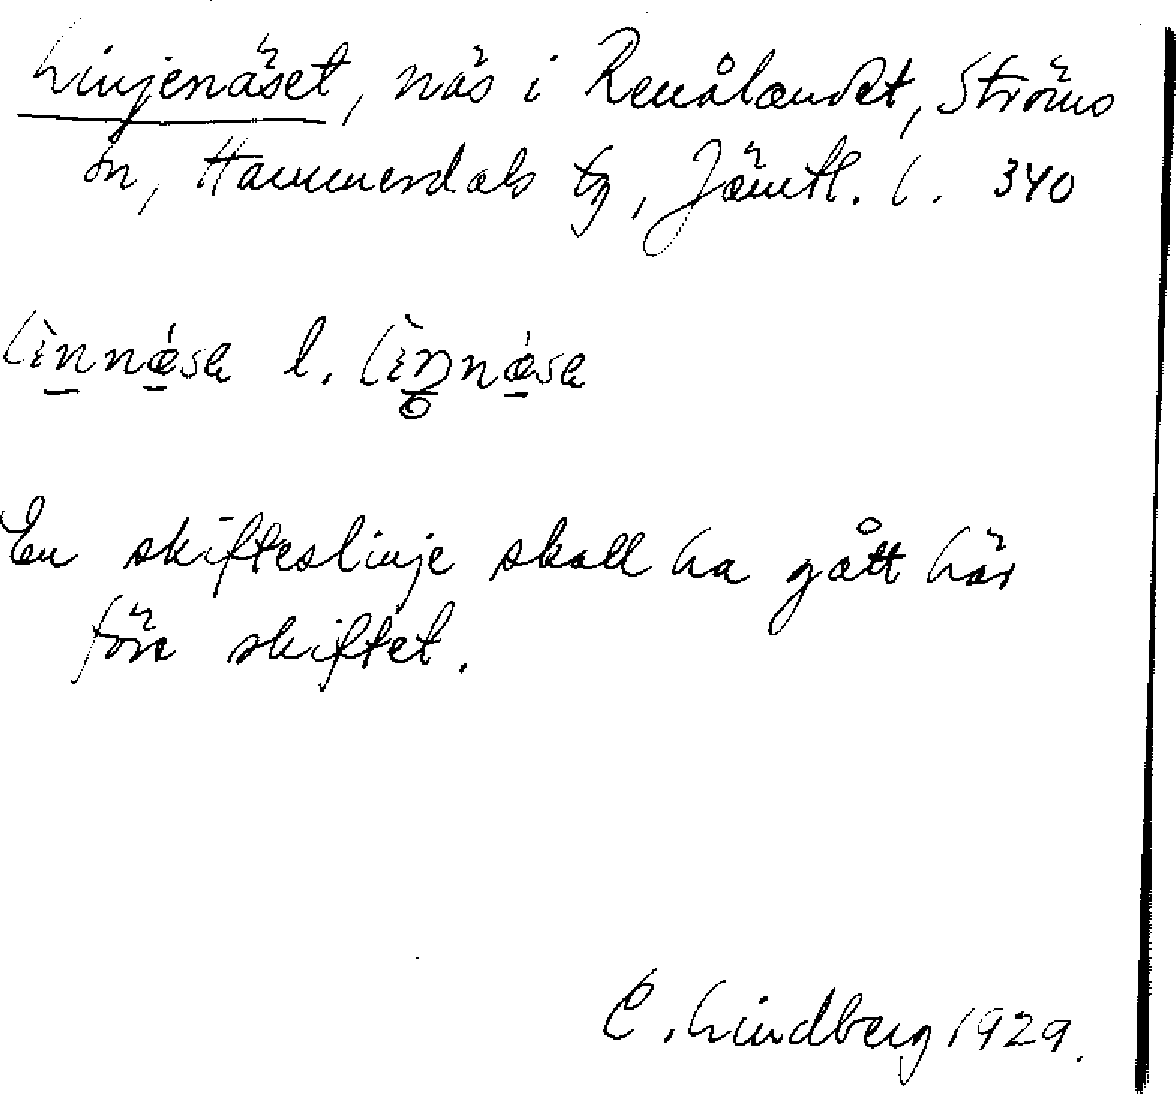 Linjenäset, näs i Renålandet, Ströms
sn, Hammerdals tg, Jämtl. l. 340
lìnnǽsa l. lìnnǽsa
En skifteslinje skall ha gått här
före skiftet.
C. Lindberg 1929.